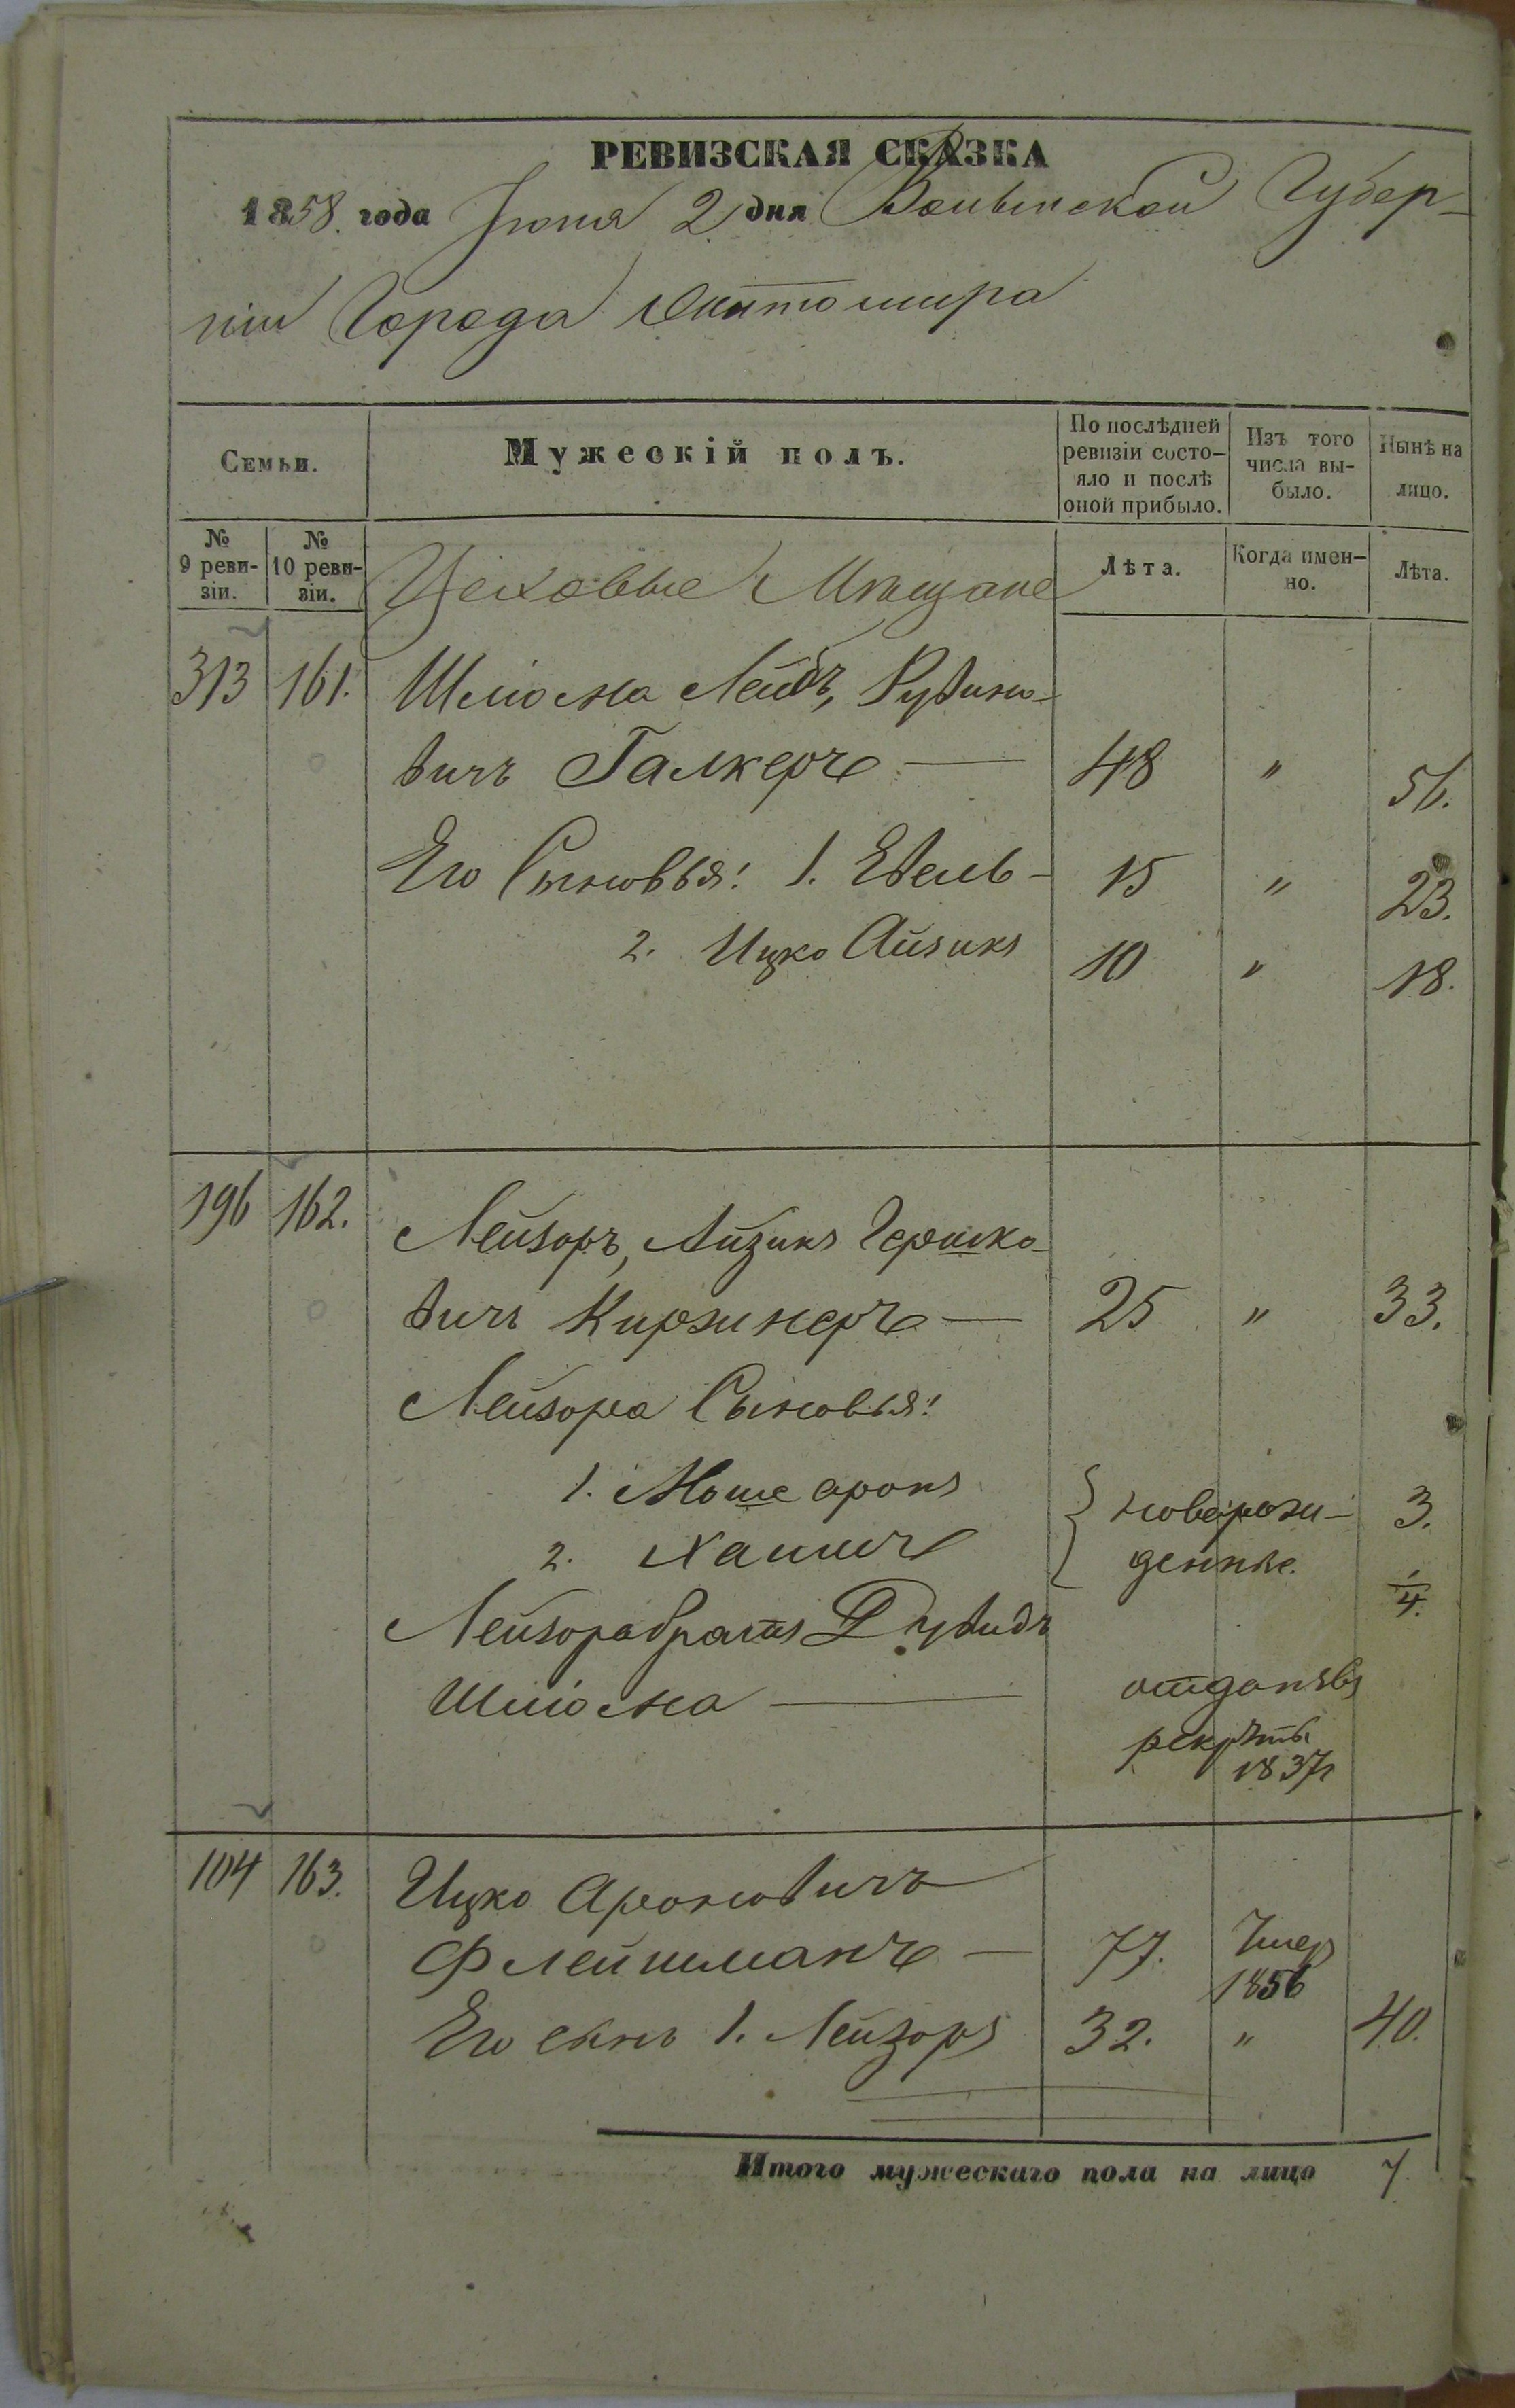 РЕВИЗСКАЯ СКАЗКА
1858. года Іюня 2 дня Волынской Губер-
ніи Города Житомира
Семьи.
Мужескій полъ.
По послѣдней ревизіи состо-яло и послѣ оной прибыло.
Изъ того числа вы-было.
Нынѣ на лицо.
№ 9 реви-зіи.
№ 10 реви-зіи.
Цеховые Мѣщане
Лѣта.
Когда имен-но.
Лѣта.
313 161. Шліома Лейбъ, Рувино-
вичъ Галкеръ — 48 " 56.
Его Сыновья: 1. Евель - 15 " 23.
2. Ицко Айзикъ 10 " 18.
196 162. Лейзоръ, Айзикъ Гершко-
вичъ Киржнеръ — 25 " 33.
Лейзора Сыновья:
1. Моше аронъ новорож- 3.
2. Хаимъ денные. 1/4.
Лейзора братъ Дувидъ
Шліома — отданъ въ
рекруты
1837г
104 163. Ицко Ароновичъ
Флейшманъ — 77. Умер 1856
Его сынъ 1. Лейзоръ 32. " 40.
Итого мужескаго пола на лицо 7